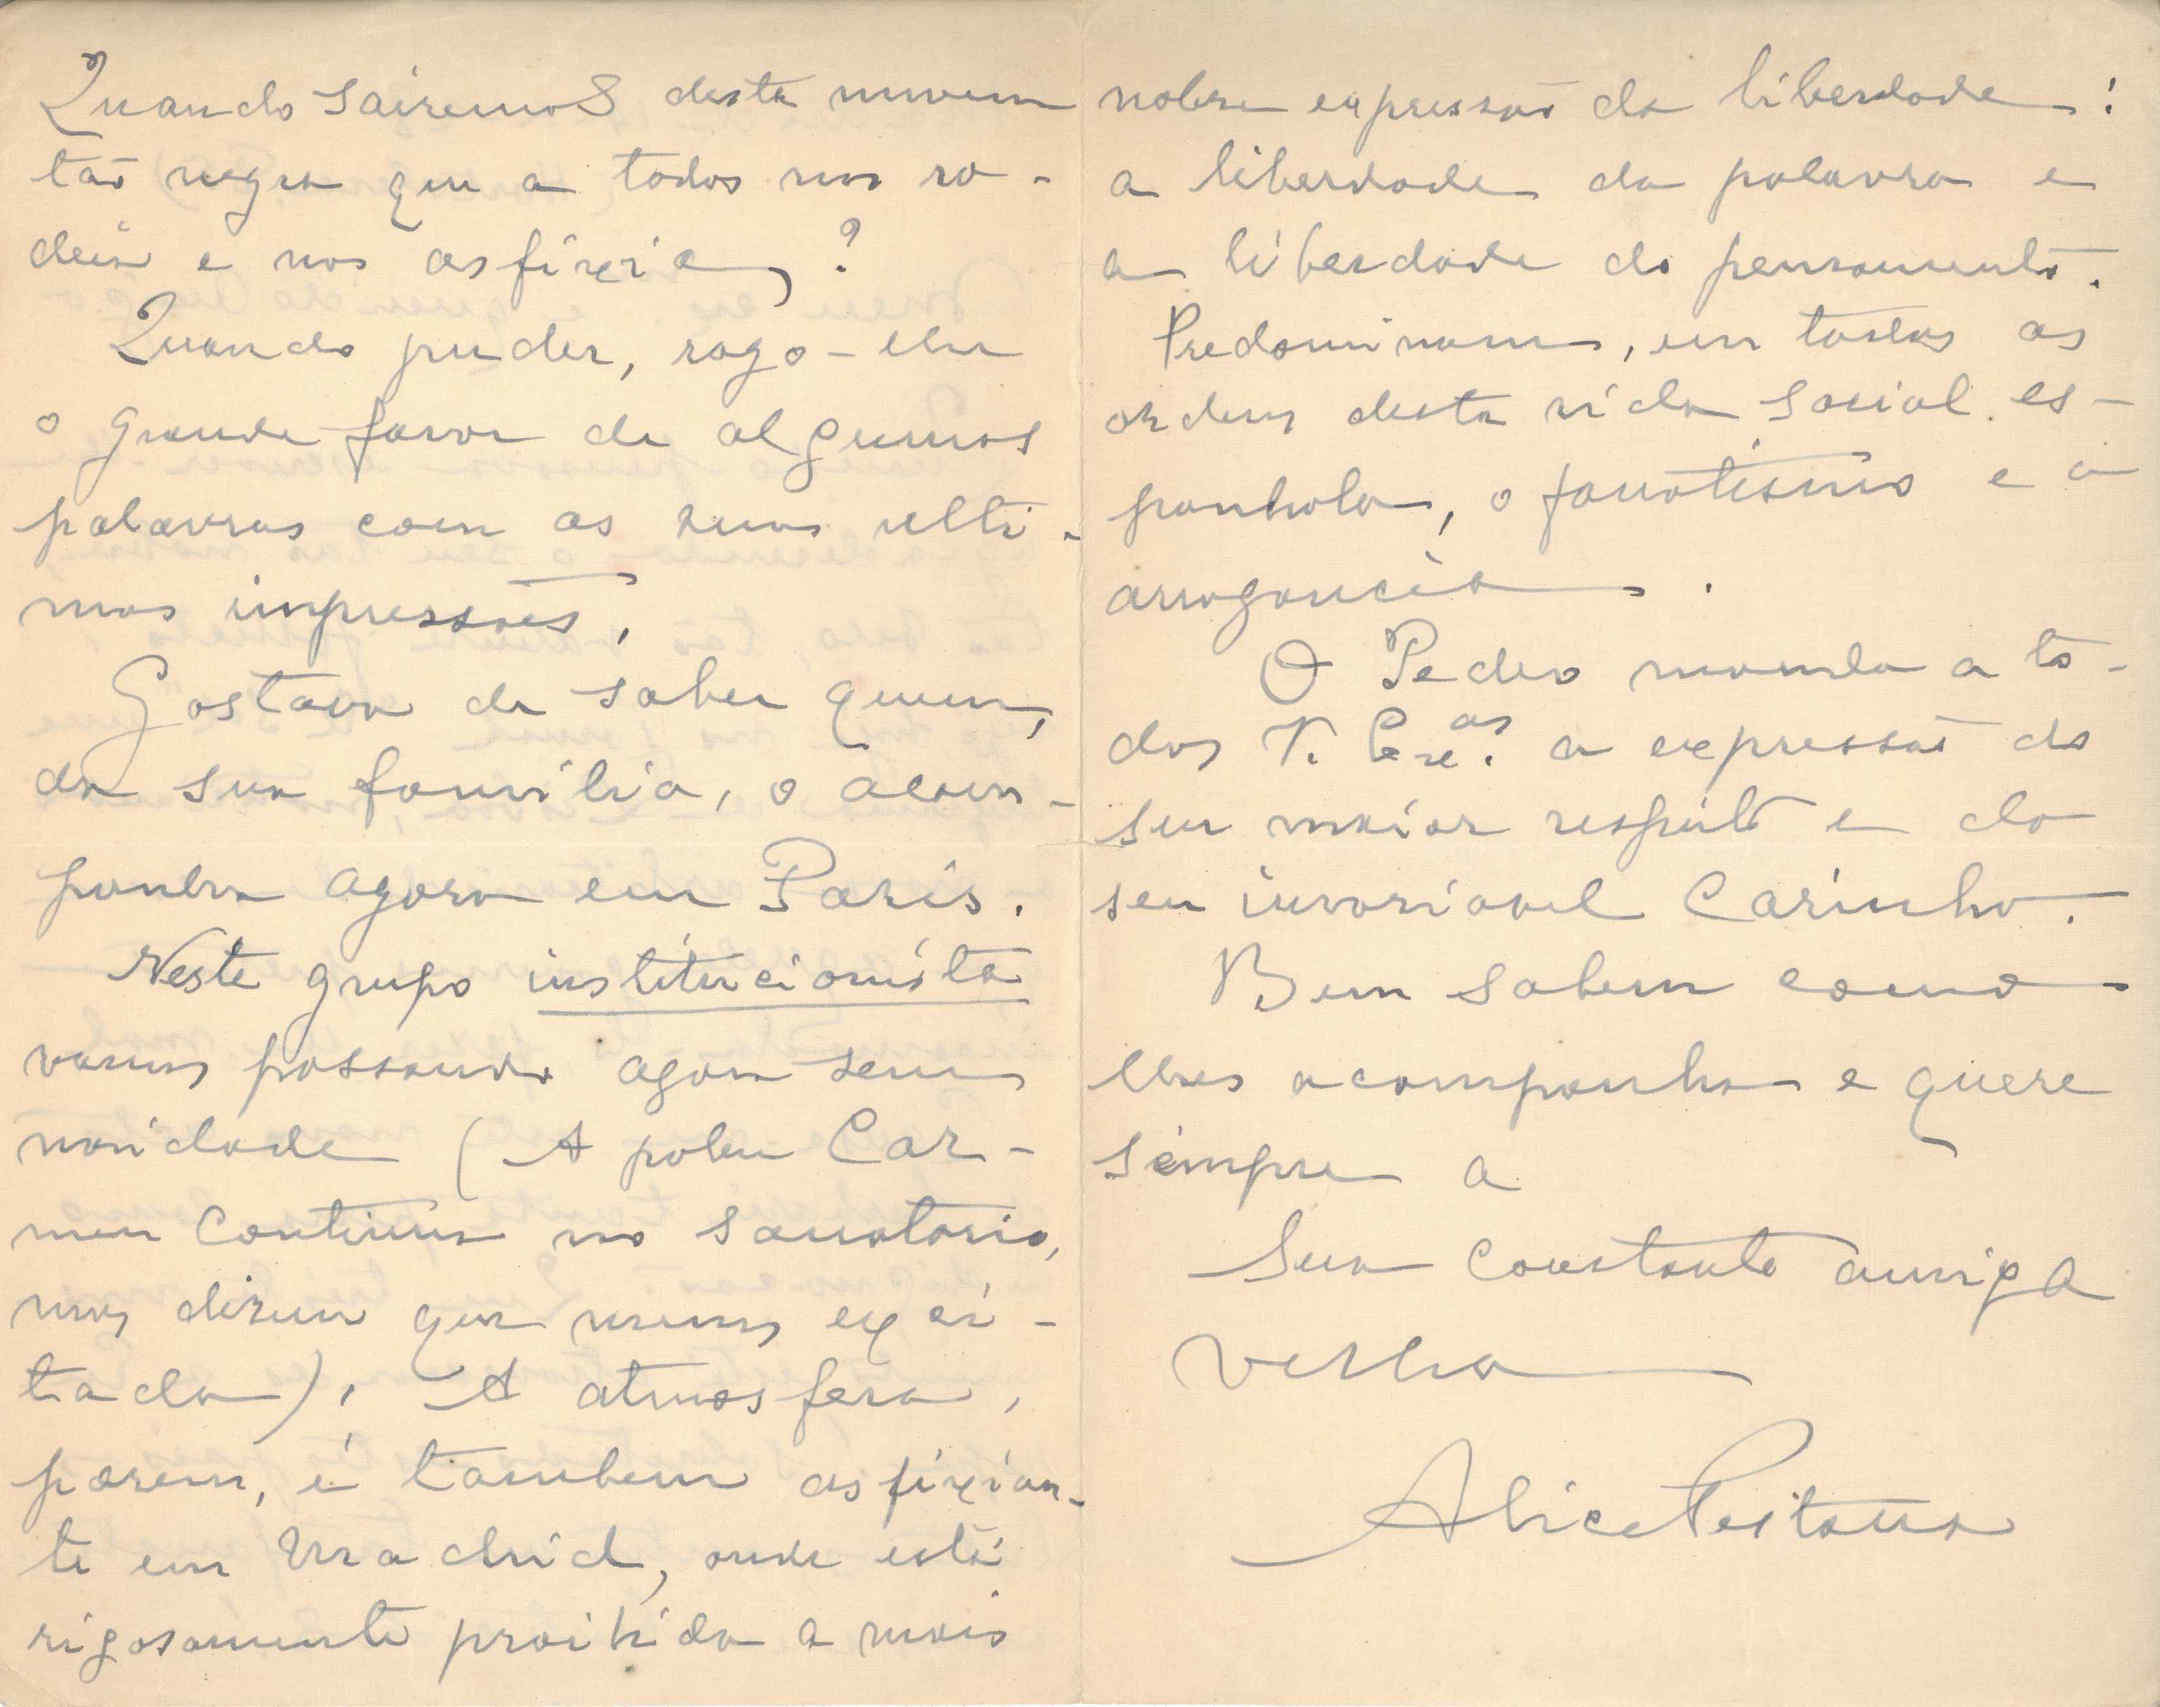 Quando sairemos desta nuvem
tão negra que a todos nos ro-
deia e nos asfixia?
Quando puder, rogo-lhe
o grande favor de algumas
palavras com as suas ulti-
mas impressões.
Gostava de saber quem,
da sua familia, o acom-
panha agora em Paris.
Neste grupo institucionista
vamos passando agora sem
novidade (A pobre Car-
men continua no sanatorio,
mas dizem que menos exci-
tada). A atmosfera,
porem, é tambem asfixian-
te em Madrid, onde está
rigorosamente proibida a mais
nobre expressão da liberdade:
a liberdade da palavra e
a liberdade do pensamento.
Predominam, em todas as
ordens desta vida social es-
panhola, o fanatismo e a
arrogancia.
O Pedro manda a to-
dos V. Ex.as a expressão do
seu maior respeito e do
seu invariavel carinho.
Bem sabem como
lhes acompanha e quere
sempre a
Sua constante amiga
velha
Alice Pestana